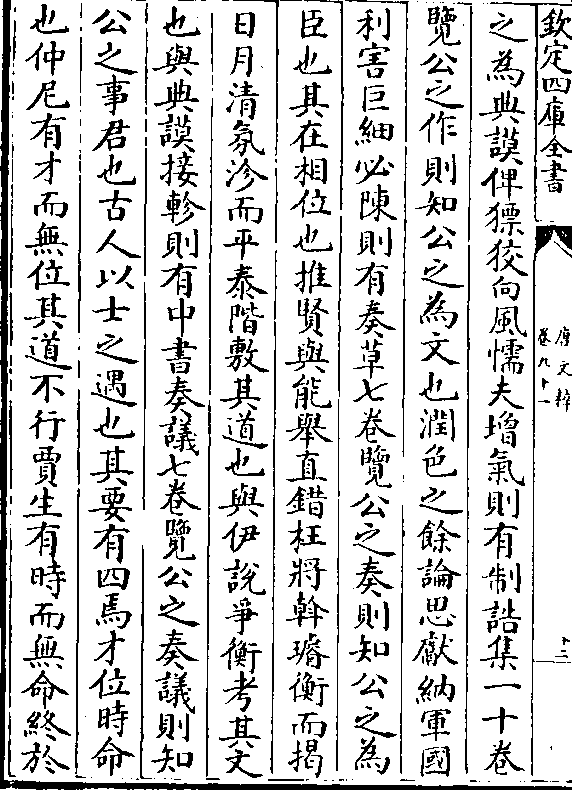 欽定四庫全書
唐文粹
卷九十一
十三
之為典謨俾獷狡向風懦夫增氣則有制誥集一十卷
覽公之作則知公之為文也潤色之餘論思獻納軍國
利害巨細必陳則有奏草七卷覽公之奏則知公之為
臣也其在相位也推賢與能舉直錯枉將斡璿衡而揭
日月清氛沴而平泰階敷其道也與伊說爭衡考其文
也與典謨接軫則有中書奏議七卷覽公之奏議則知
公之事君也古人以士之遇也其要有四焉才位時命
也仲尼有才而無位其道不行賈生有時而無命終於